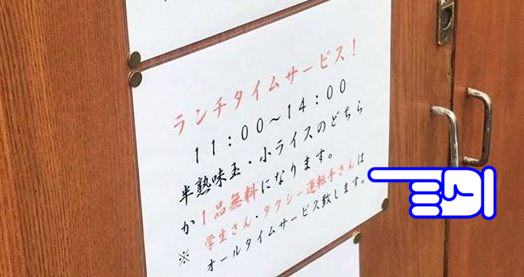 ランチタイムサービス！
11：00～14：00
半熟味玉・小ライスのどちら
か1品無料になります。
※ 学生さん・タクシー運転手さんは
オールタイムサービス致します。